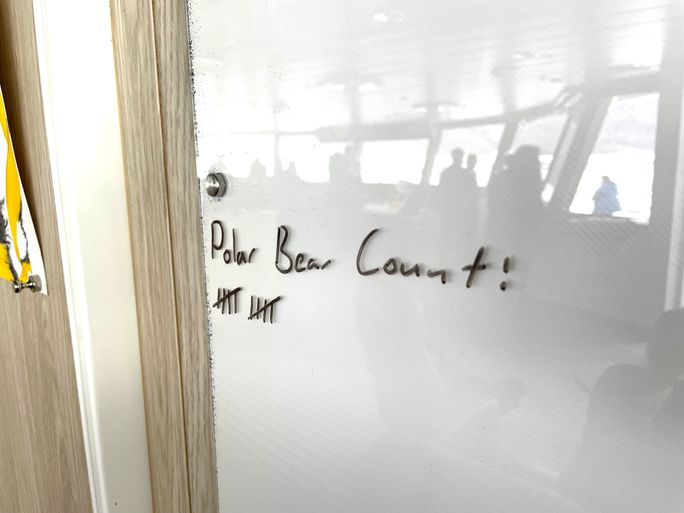 Polar Bear Count!